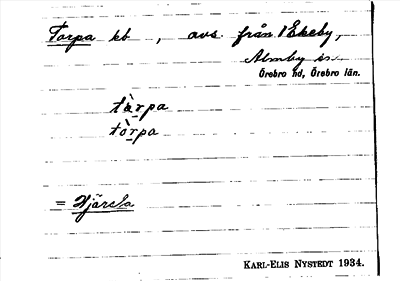 Torpa kt , avs. från 1 Ekeby,
Almby sn
Örebro hd, Örebro län.
tàrpa
tòrpa
= Njärsta
KARL-ELIS NYSTEDT 1934.